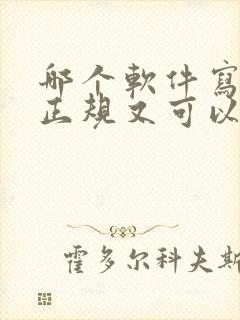 那个軟件寫
正規又可以
霍多尔科夫斯